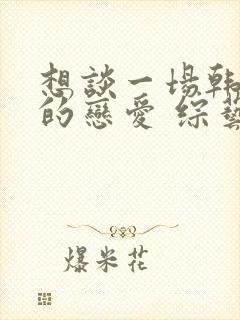 想談一場韓
的戀愛 綜藝
爆米花